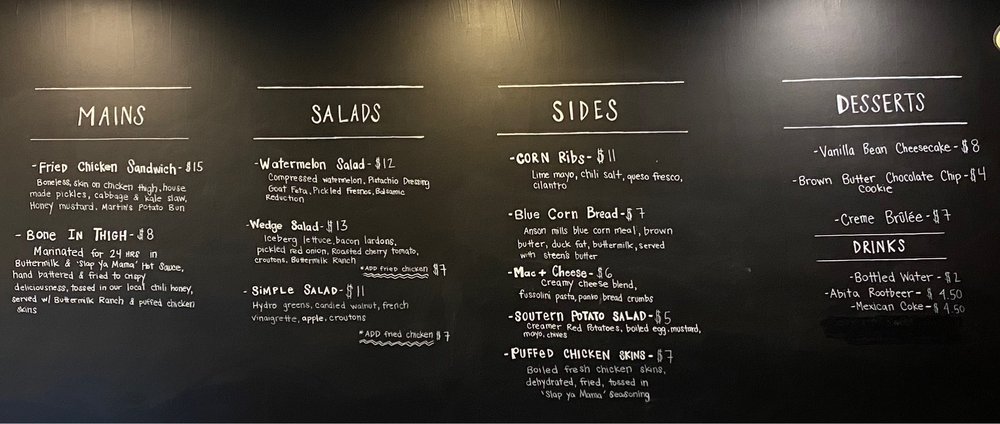 MAINS
-Fried Chicken Sandwich-$15
Boneless, skin on chicken thigh, house
made pickles, cabbage & kale slaw,
Honey mustard, Martin's Potato Bun
- BONE IN THIGH-$8
Marinated for 24 HRS in
Buttermilk & 'Slap Ya Mama' Hot Sauce,
hand battered & fried to crispy
deliciousness, tossed in our local chili honey,
served w/ Buttermilk Ranch & puffed chicken
skins
SALADS
-Watermelon Salad-$12
Compressed watermelon, Pistachio Dressing
Goat Feta, Pickled Fresnos, Balsamic
Reduction
-Wedge Salad-$13
Iceberg lettuce, bacon lardons,
pickled red onion, Roasted cherry tomato,
croutons, Buttermilk Ranch
*ADD fried chicken $7
-SIMPLE SALAD-$11
Hydro greens, candied walnut, french
vinaigrette, apple, croutons
*ADD fried chicken $7
SIDES
-CORN Ribs-$11
Lime mayo, chili salt, queso fresco,
cilantro
-Blue Corn Bread-$7
Anson mills blue corn meal, brown
butter, duck fat, buttermilk, served
with steen's butter
-Mac + Cheese-$6
Creamy cheese blend,
fussolini pasta, panko, bread crumbs
-SOUTERN POTATO SALAD-$5
Creamer Red Potatoes, boiled egg, mustard,
mayo, chives
-PUFFED CHICKEN SKINS-$7
Boiled fresh chicken skins,
dehydrated, fried, tossed in
'Slap ya Mama' Seasoning
DESSERTS
-Vanilla Bean Cheesecake-$8
-Brown Butter Chocolate Chip-$4
Cookie
-Creme Brûlée-$7
DRINKS
-Bottled Water-$2
-Abita Rootbeer-$4.50
-Mexican Coke-$4.50